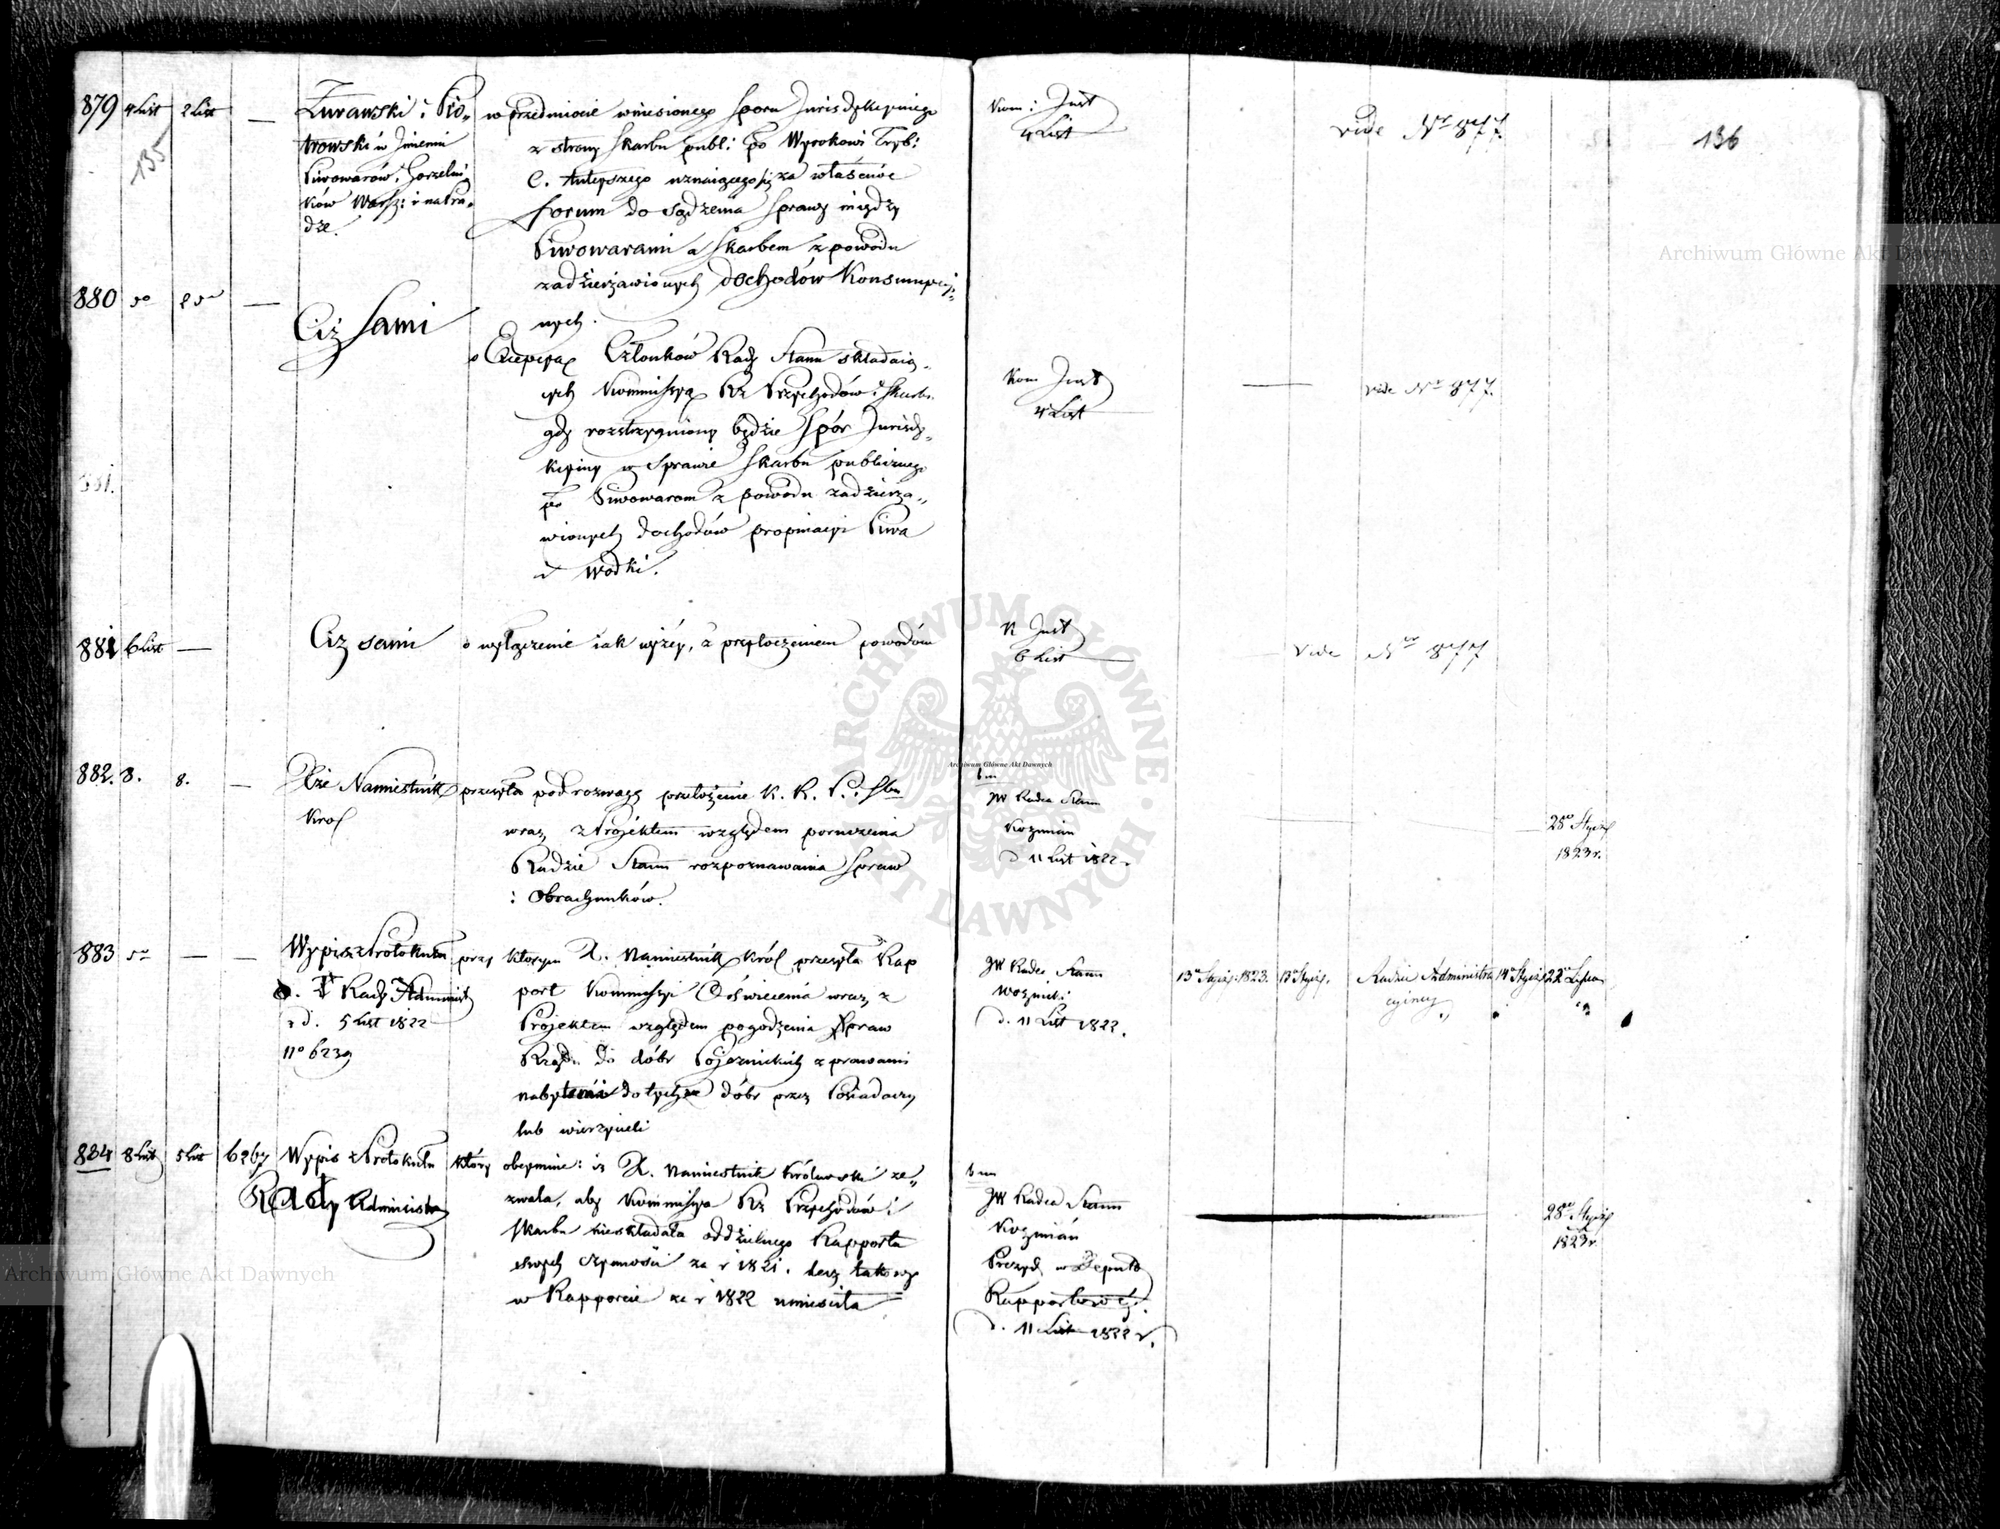 135
136
879 4 List 2 List — Żurawski i Pio„
trowski w Jmieniu
Piwowarów i Gorzelni„
ków Warsz:
w przedmiocie wniesionego Sporu Jurisdykcyinego
z strony Skarbu publ: po Wyrokowi Tryb:
C. tutejszego uznaiącego się za właściwe
forum do sądzenia sprawy między
Piwowarami a Skarbem z powodu
zadzierzawionych dochodów Konsumpcyi„
nych.
Kom: Just
4 List
vide Nr 877.
880
Ciż Sami
o Członków Rady Stanu składaią„
cych Kommissyą Rz Przychodów i Skarbu
gdy rozstrzygniony będzie Spór Jurisdy„
kcyiny w Sprawie Skarbu publicznego
po Piwowarom z powodu zadzierza„
wionych dochodów propinacyi Piwa
i Wodki.
Kom Just
4 List
vide Nr 877.
881.
881 6 List —
Ciż sami
o wyłączenie iak wyżéy, z przytoczeniem powodów
K Just
6 List
vide Nro 877
882. 8. 8. —
Xże Namiestnik
Krol
przesyła pod rozwagę przełożenie K. R. P. i Sbu
wraz z Projektem względem poruczenia
Radzie Stanu rozpoznawania Spraw
i Obrachunków.
JW Radca Stanu
Kozmian
d 11 List 1822.
28go Stycz
1823 r.
883 — —
Wypis z Protokułu
Rady Administ
z d. 5 List 1822
no 6239
przy którym X. Namiestnik Król przesyła Rap
port Kommissyi Oświecenia wraz z
Projektem względem pogodzenia Spraw
Rządu do dóbr z prawami
nabytemi do tychże dóbr przez Posiadaczy
lub wierzycieli
JW Radca Stanu
Woznicki
d. 11 List 1822.
13 Stycz: 1823. 13 Stycz. Radzie Administra
cyiney
14 Stycz 22 Lipca
884 8 List 5 List 6267
Wypis z Protokułu
Rady Administra
który obeymuie: iż X. Namiestnik Królewski ze„
zwala, aby Kommissya Rz Przychodów i
Skarbu nieskładała oddzielnego Rapportu
swych czynności za r 1821. lecz takowy
w Rapporcie za r 1822 umieściła
JW Radca Stanu
Kozmian
Prezyd w Deputa
Rapportowéy.
d. 11 List 1822 r.
28go Stycz
1823 r.
Archiwum Główne Akt Dawnych
Archiwum Główne Akt Dawnych
Archiwum Główne Akt Dawnych
ARCHIWUM GŁÓWNE AKT DAWNYCH